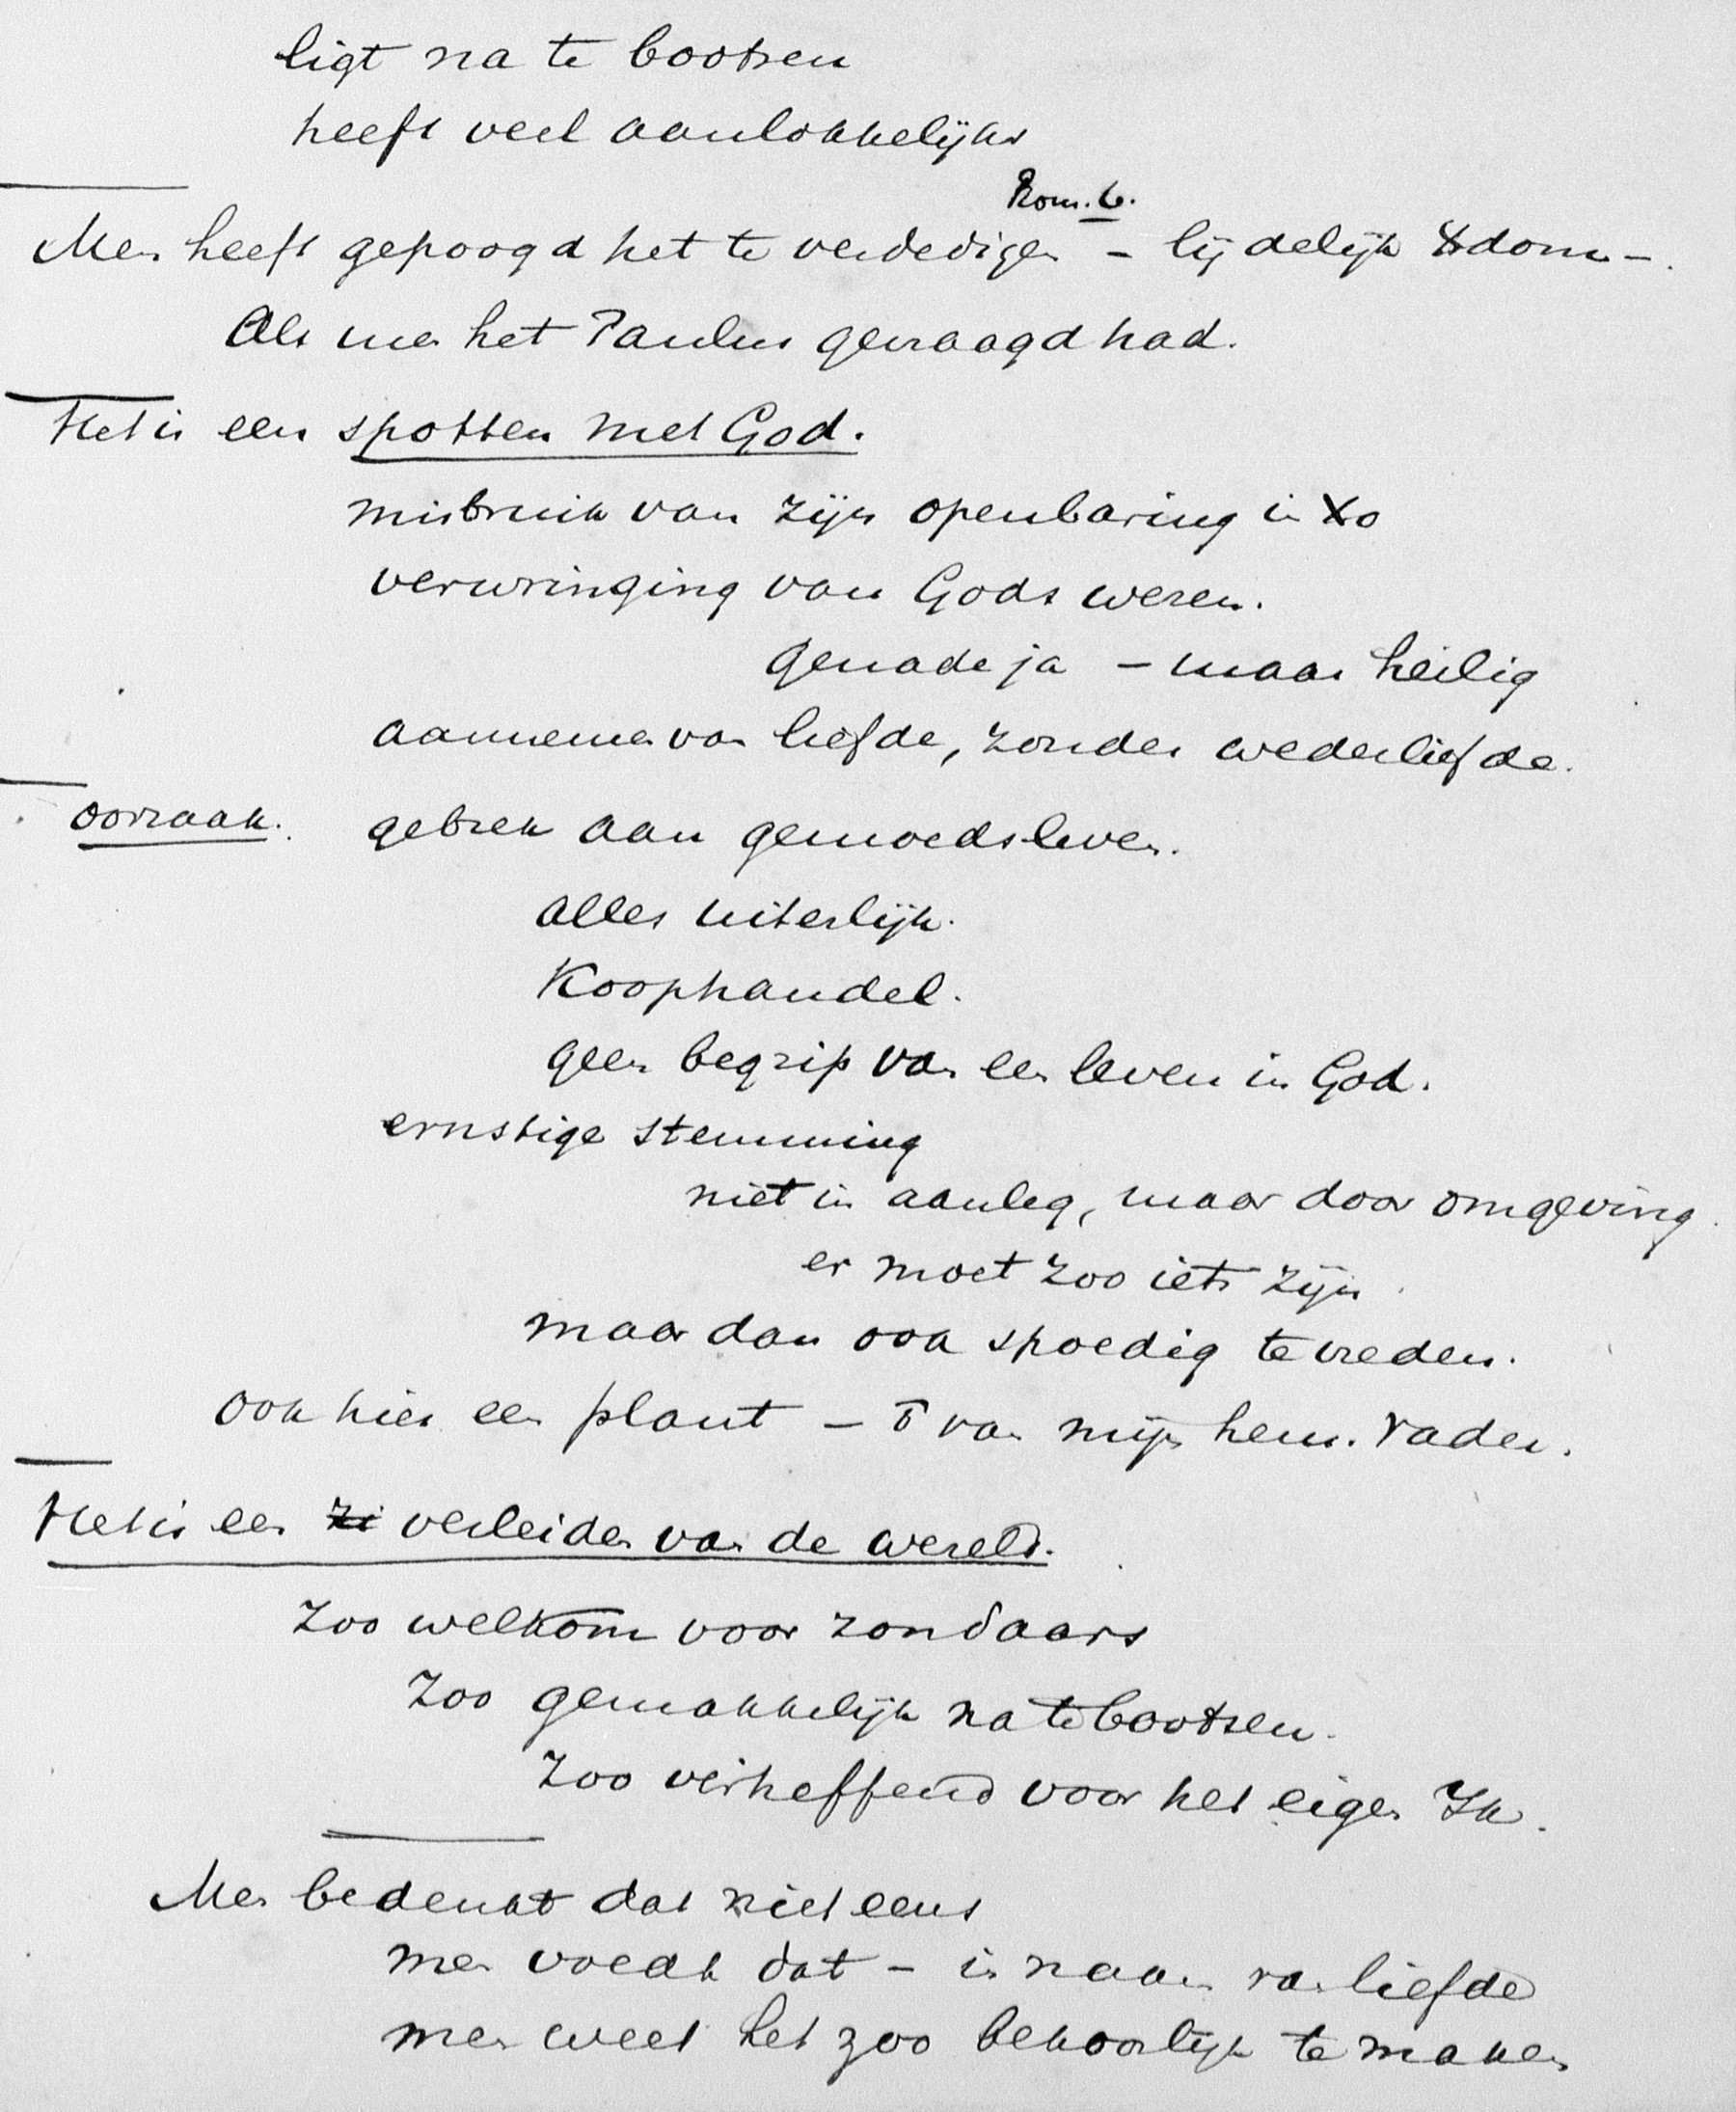 ligt na te bootsen
heeft veel aanlokkelijks
Rom. 6.
Men heeft gepoogd het te verdedigen – lijdelijk Xdom –.
Als men het Paulus gevraagd had.
Het is een spotten met God.
misbruik van zijn openbaring in Xo
verwringing van Gods wezen.
genade ja – maar heilig
aannemen van liefde, zonder wederliefde.
oorzaak. gebrek aan gemoedsleven.
alles uiterlijk.
Koophandel.
geen begrip van een leven in God.
ernstige stemming
niet in aanleg, maar door omgeving.
er moet zoo iets zijn.
maar dan ook spoedig tevreden.
ook hier een plant – van mijn hem. Vader.
Het is een verleiden van de wereld.
Zoo welkom voor zondaars
Zoo gemakkelijk na te bootsen.
Zoo verheffend voor het eigen Ik.
Men bedenkt dat niet eens
men voedt dat – in naam van liefde
men weet het zoo bekoorlijk te maken